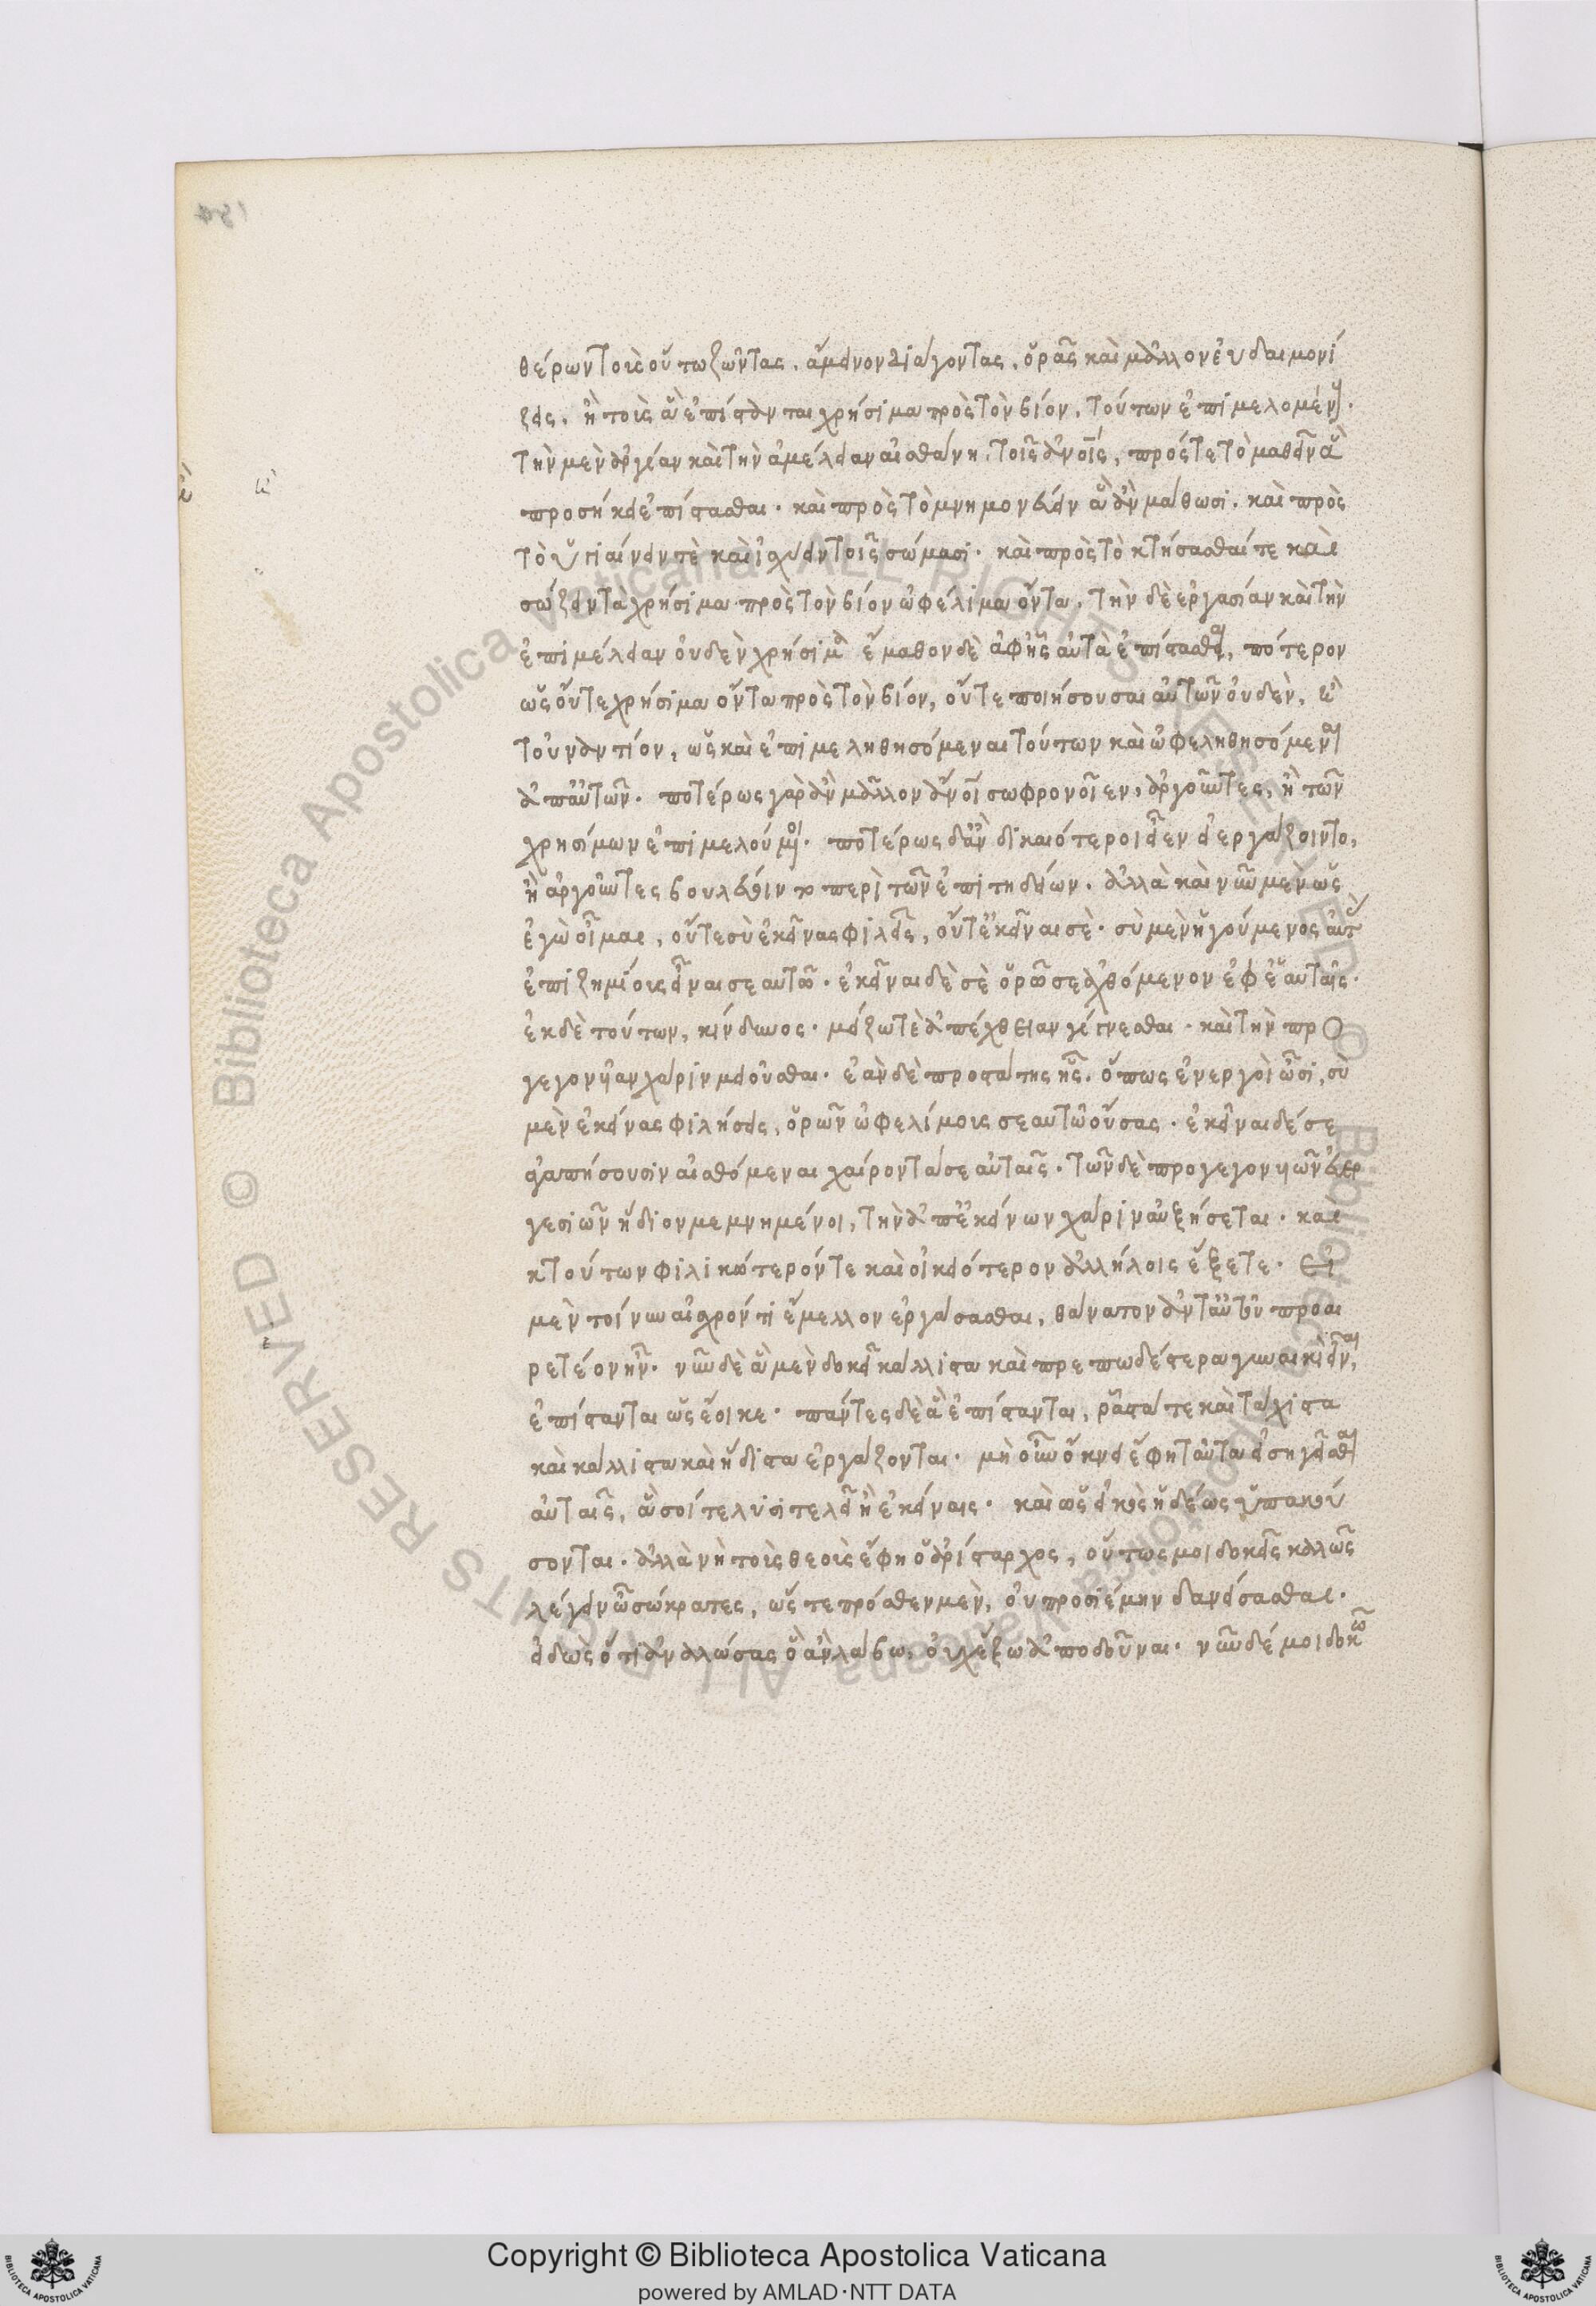 θέρων τοὺς οὕτω ζῶντας. ἄμεινον διάγοντας. ὁρᾷς καὶ μᾶλλον εὐδαιμονί
ζεις. ἢ τοὺς ἃ ἐπίστανται χρήσιμα πρὸς τὸν βίον, τούτων ἐπιμελομένους.
τὴν μὲν ἀργίαν καὶ τὴν ἀμέλειαν αἰσθάνῃ τοῖς ἀνοις, πρός τε τὸ μαθεῖν ἃ
προσήκει ἐπίστασθαι. καὶ πρὸς τὸ μνημονεύειν ἃ ἂν μάθωσι. καὶ πρὸς
τὸ ὑγιαίνειν τὲ καὶ ἰσχύειν τοῖς σώμασι. καὶ πρὸς τὸ κτήσασθαί τε καὶ
σώζειν τὰ χρήσιμα πρὸς τὸν βίον ὠφέλιμα ὄντα, τὴν δὲ ἐργασίαν καὶ τὴν
ἐπιμέλειαν οὐδὲν χρήσιμα ἔμαθον δὲ ἃ φῂς αὐτὰ ἐπίστασθαι, πότερον
ὡς οὔτε χρήσιμα ὄντα πρὸς τὸν βίον, οὔτε ποιήσουσαι αὐτῶν οὐδὲν, ἢ
τοὐναντίον, ὡς καὶ ἐπιμεληθησόμεναι τούτων καὶ ὠφεληθησόμεναι
ἀπ' αὐτῶν. ποτέρως γὰρ ἂν μᾶλλον ἄνοι σωφρονοῖεν, ἀργοῦντες, ἢ τῶν
χρησίμων ἐπιμελούμενοι. ποτέρως δ' ἂν δικαιότεροι εἶεν εἰ ἐργάζοιντο,
ἢ ἀργοῦντες βουλεύοιντο περὶ τῶν ἐπιτηδείων. ἀλλὰ καὶ νῦν μὲν ὡς
ἐγὼ οἶμαι, οὔτε σὺ ἐκείνας φιλεῖς, οὔτ' ἐκεῖναι σὲ. σὺ μὲν ἡγούμενος αὐτὰς
ἐπιζημίους εἶναι σεαυτῶ. ἐκεῖναι δὲ σὲ ὁρῶσαι ἀχθόμενον ἐφ' ἑαυταῖς.
ἐκ δὲ τούτων, κίνδυνος. μείζω τὲ ἀπέχθειαν γίγνεσθαι. καὶ τὴν προ
γεγονυῖαν χάριν μειοῦσθαι. ἐὰν δὲ προστάτης ᾖς. ὅπως ἐνεργοὶ ὦσι, σὺ
μὲν ἐκείνας φιλήσεις, ὁρῶν ὠφελίμους σεαυτῶ οὔσας. ἐκεῖναι δέ σε
ἀγαπήσουσιν αἰσθόμεναι χαίροντά σε αὐταῖς. τῶν δὲ προγεγονυιῶν εὐερ
γεσιῶν ἥδιον μεμνημένοι, τὴν ἀπ' ἐκείνων χάριν αὐξήσεται. καὶ
κ τούτων φιλικώτερόν τε καὶ οἰκειότερον ἀλλήλοις ἕξετε. Εἰ
μὲν τοίνυν αἰσχρόν τι ἔμελλον ἐργάσασθαι, θάνατον ἀντ' αὐτοῦ προαι
ρετέον ἦν. νῦν δὲ ἃ μὲν δοκεῖ κάλλιστα καὶ πρεπωδέστερα γυναικὶ εἶναι,
ἐπίστανται ὡς ἔοικε. πάντες δὲ ἃ ἐπίστανται, ῥᾷστά τε καὶ τάχιστα
καὶ κάλλιστα καὶ ἥδιστα ἐργάζονται. μὴ οὖν ὄκνει ἔφη ταῦτα εἰσηγεῖσθαι
αὐταῖς, ἃ σοί τε λυσιτελεῖ ἢ ἐκείναις. καὶ ὡς εἰκὸς ἡδέως ὑπακού
σονται. ἀλλὰ νὴ τοὺς θεοὺς ἔφη ὁ ἀρίσταρχος, οὕτως μοι δοκεῖς καλῶς
λέγειν ὦ σώκρατες, ὥστε πρόσθεν μὲν, οὐ προσιέμην δανείσασθαι.
εἰδὼς ὅτι ἀναλώσας ὃ ἂν λάβω, οὐχ ἕξω ἀποδοῦναι. νῦν δέ μοι δοκῶ
Copyright © Biblioteca Apostolica Vaticana
powered by AMLAD·NTT DATA